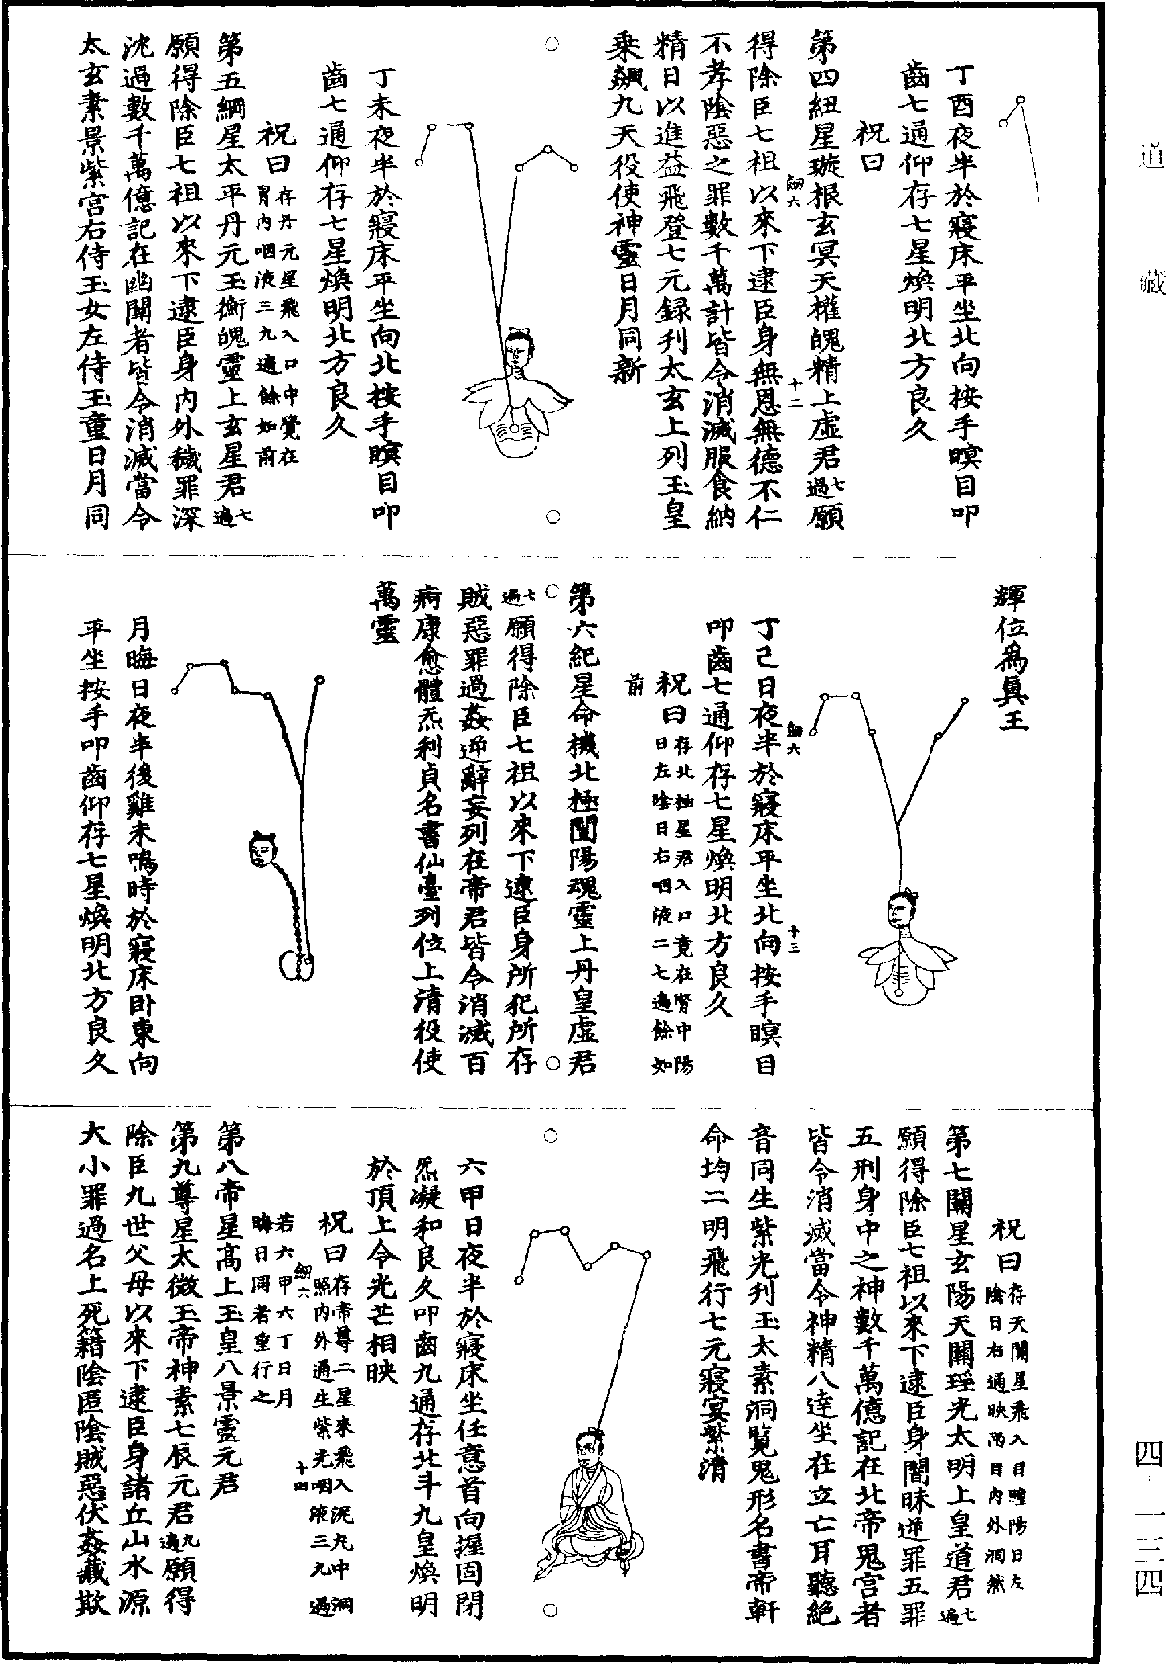 道藏
丁酉夜半於寢床平坐北向按手瞑目叩
齒七通仰存七星煥明北方良久
祝曰
第四紐星璇根玄冥天權魄精上虛君七過願
劒六
十二
得除臣七祖以來下逮臣身無恩無德不仁
不孝陰惡之罪數千萬計皆令消滅服食納
精日以進益飛登七元録刋太玄上列玉皇
乘飆九天役使神靈日月同新
丁未夜半於寢床平坐向北按手瞑目叩
齒七通仰存七星煥明北方良久
祝曰存丹元星飛入口中覺在
胃內咽液三九過餘如前
第五綱星太平丹元玉衡魄靈上玄星君七過
願得除臣七祖以來下逮臣身內外穢罪深
沈過數千萬億記在幽關者皆令消滅當令
太玄素景紫宮右侍玉女左侍玉童日月同
輝位爲眞王
劒六
十三
丁己日夜半於寢床平坐北向按手瞑目
叩齒七通仰存七星煥明北方良久
祝曰存北極星君入口竟在腎中陽
日左陰日右咽液二七過餘如
前
第六紀星命機北極闓陽魂靈上丹皇虛君
七過願得除臣七祖以來下逮臣身所犯所存
賊惡罪過姦逆辭妄列在帝君皆令消滅百
痾康愈體炁利貞名書仙臺列位上清役使
萬靈
月晦日夜半後雞未鳴時於寢床卧東向
平坐按手叩齒仰存七星煥明北方良久
祝曰存天關星飛入目瞳陽日左
陰日右通映兩目內外洞然
第七關星玄陽天關瑤光太明上皇道君七過
願得除臣七祖以來下逮臣身闇昧逆罪五罪
五刑身中之神數千萬億記在北帝鬼官者
皆令消滅當令神精八達坐在立亡耳聽絕
音同生紫光刋玉太素洞覽鬼形名書帝軒
命均二明飛行七元寢宴紫清
六甲日夜半於寢床坐任意首向握固閉
炁凝和良久叩齒九通存北斗九皇煥明
於頂上令光芒相映
祝曰存帝尊二星來飛入泥丸中洞
照內外通生紫光咽液三九過
劒六
十四
若六甲六丁日月
晦日同者重行之
第八帝星高上玉皇八景靈元君
第九尊星太微玉帝神素七辰元君九過願得
除臣九世父母以來下逮臣身諸丘山水源
大小罪過名上死籍陰匿陰賊惡伏姦藏欺
四‧一三四